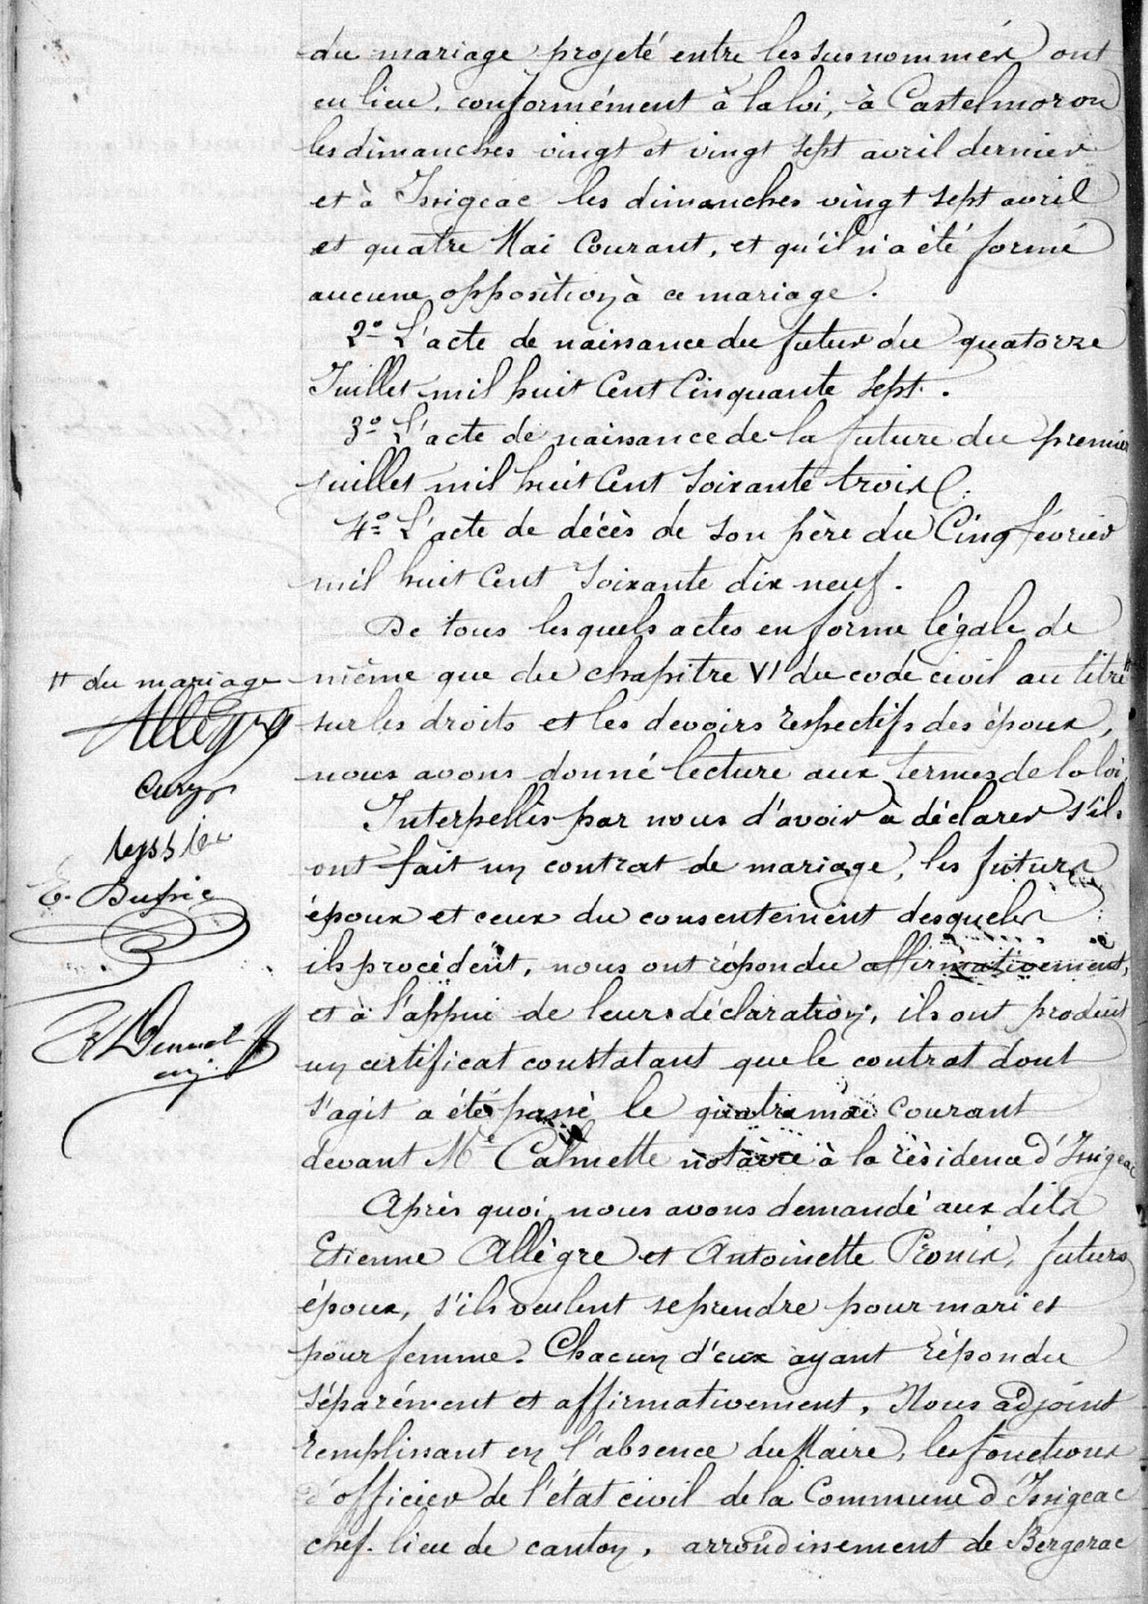 du mariage projeté entre les susnommés ont
eu lieu, conformément à la loi, à Castelmoron
les dimanches vingt et vingt sept avril dernier
et à Issigeac les dimanches vingt sept avril
et quatre Mai Courant, et qu'il n'a été formé
aucune opposition à ce mariage.
2º L'acte de naissance du futur du quatorze
Juillet mil huit Cent Cinquante Sept.
3º L'acte de naissance de la future du premier
juillet mil huit Cent Soixante trois.
4º L'acte de décès de son père du Cinq février
mil huit Cent Soixante dix neuf.
De tous lesquels actes en forme légale de
même que du chapitre VI du code civil au titre #
# du mariage
sur les droits et les devoirs respectifs des époux,
nous avons donné lecture aux termes de la loi.
Interpellés par nous d'avoir à déclarer s'ils
ont fait un contrat de mariage, les futurs
époux et ceux du consentement desquels
ils procèdent, nous ont répondu affirmativement,
et à l'appui de leurs déclaration, ils ont produit
un certificat constatant que le contrat dont
s'agit a été passé le quatre mai Courant
devant Me Calmette notaire à la résidence d'Issigeac
Après quoi, nous avons demandé aux dits
Etienne Allègre et Antoinette Pronis, futurs
époux, s'ils veulent se prendre pour mari et
pour femme. Chacun d'eux ayant répondu
séparément et affirmativement, Nous adjoint
remplissant en l'absence du Maire, les fonctions
d'officier de l'état civil de la Commune d'Issigeac
chef-lieu de canton, arrondissement de Bergerac
Allègre
E. Dupré